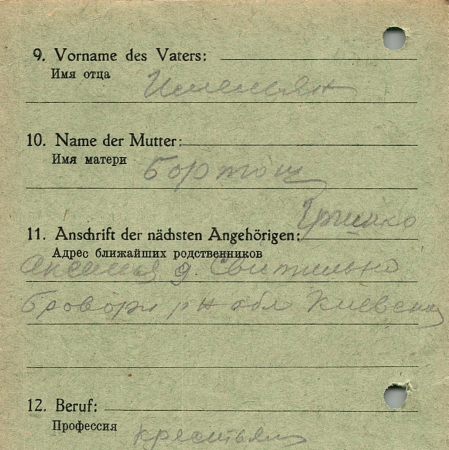 9. Vorname des Vaters:
Имя отца
Имельян
10. Name der Mutter:
Имя матери
Бортош
Гриценко
11. Anschrift der nächsten Angehörigen:
Адрес ближайших родственников
д. Свитильно
Бровары р-н обл Киевска
12. Beruf:
Профессия
крестьян